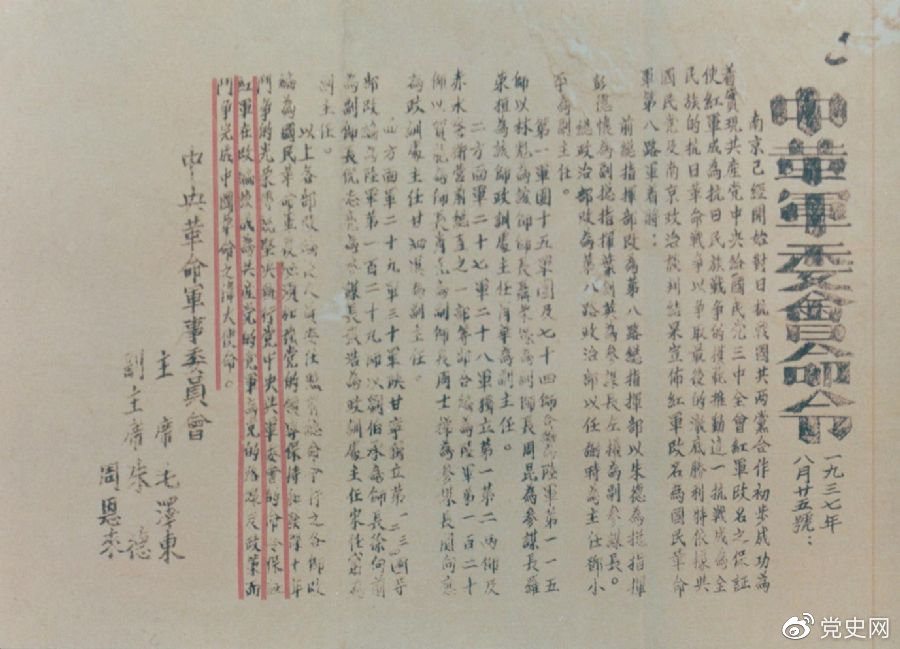 中革軍委會命令
一九三七年
八月廿五號：
南京已經開始對日抗戰國共兩黨合作初步成功為
着實現共產党中央給國民党三中全會紅軍改名之保証
使紅軍成為抗日民族戰爭的模範推動這一抗戰成為全
民族的抗日革命戰爭以爭取最後的澈底勝利特依據共
國民党及南京政治談判結果宣佈紅軍改名為國民革命
軍第八路軍着將：
前總指揮部改為第八路總指揮部以朱德為總指揮
彭德懷為副總指揮葉劍英為參謀長左權為副參謀長。
總政治部改為第八路政治部以任弼時為主任鄧小
平為副主任。
第一軍團十五軍團及七十四師合編為陸軍第一一五
師以林彪為該師師長聶榮臻為副師長周昆為參謀長羅
榮桓為該師政訓處主任肖華為副主任。
二方面軍二十七軍二十八軍獨立第一第二兩師及
赤水警衛營前總直之一部等部合編為陸軍第一百二十
師以賀龍為師長肖克為副師長周士弟為參謀長関向應
為政訓處主任甘泗淇為副主任。
四方面軍二十九軍三十軍陝甘寧獨立第一二三四等
部改編為陸軍第一百二十九師以劉伯承為師長徐向前
為副師長倪志亮為參謀長張浩為政訓處主任宋任窮為
副主任。
以上各部改編後人員委任照前總命令行之各師改
編為國民革命軍後必須加強党的領導保持和發揮十年
鬥爭的光榮傳統堅決執行党中央與軍委會的命令保証
紅軍在改編後成為共產党的党軍為党的路線及政策而
鬥爭完成中國革命之偉大使命。
中央革命軍事委員會
主席毛澤東
副主席朱德
周恩來
党史网